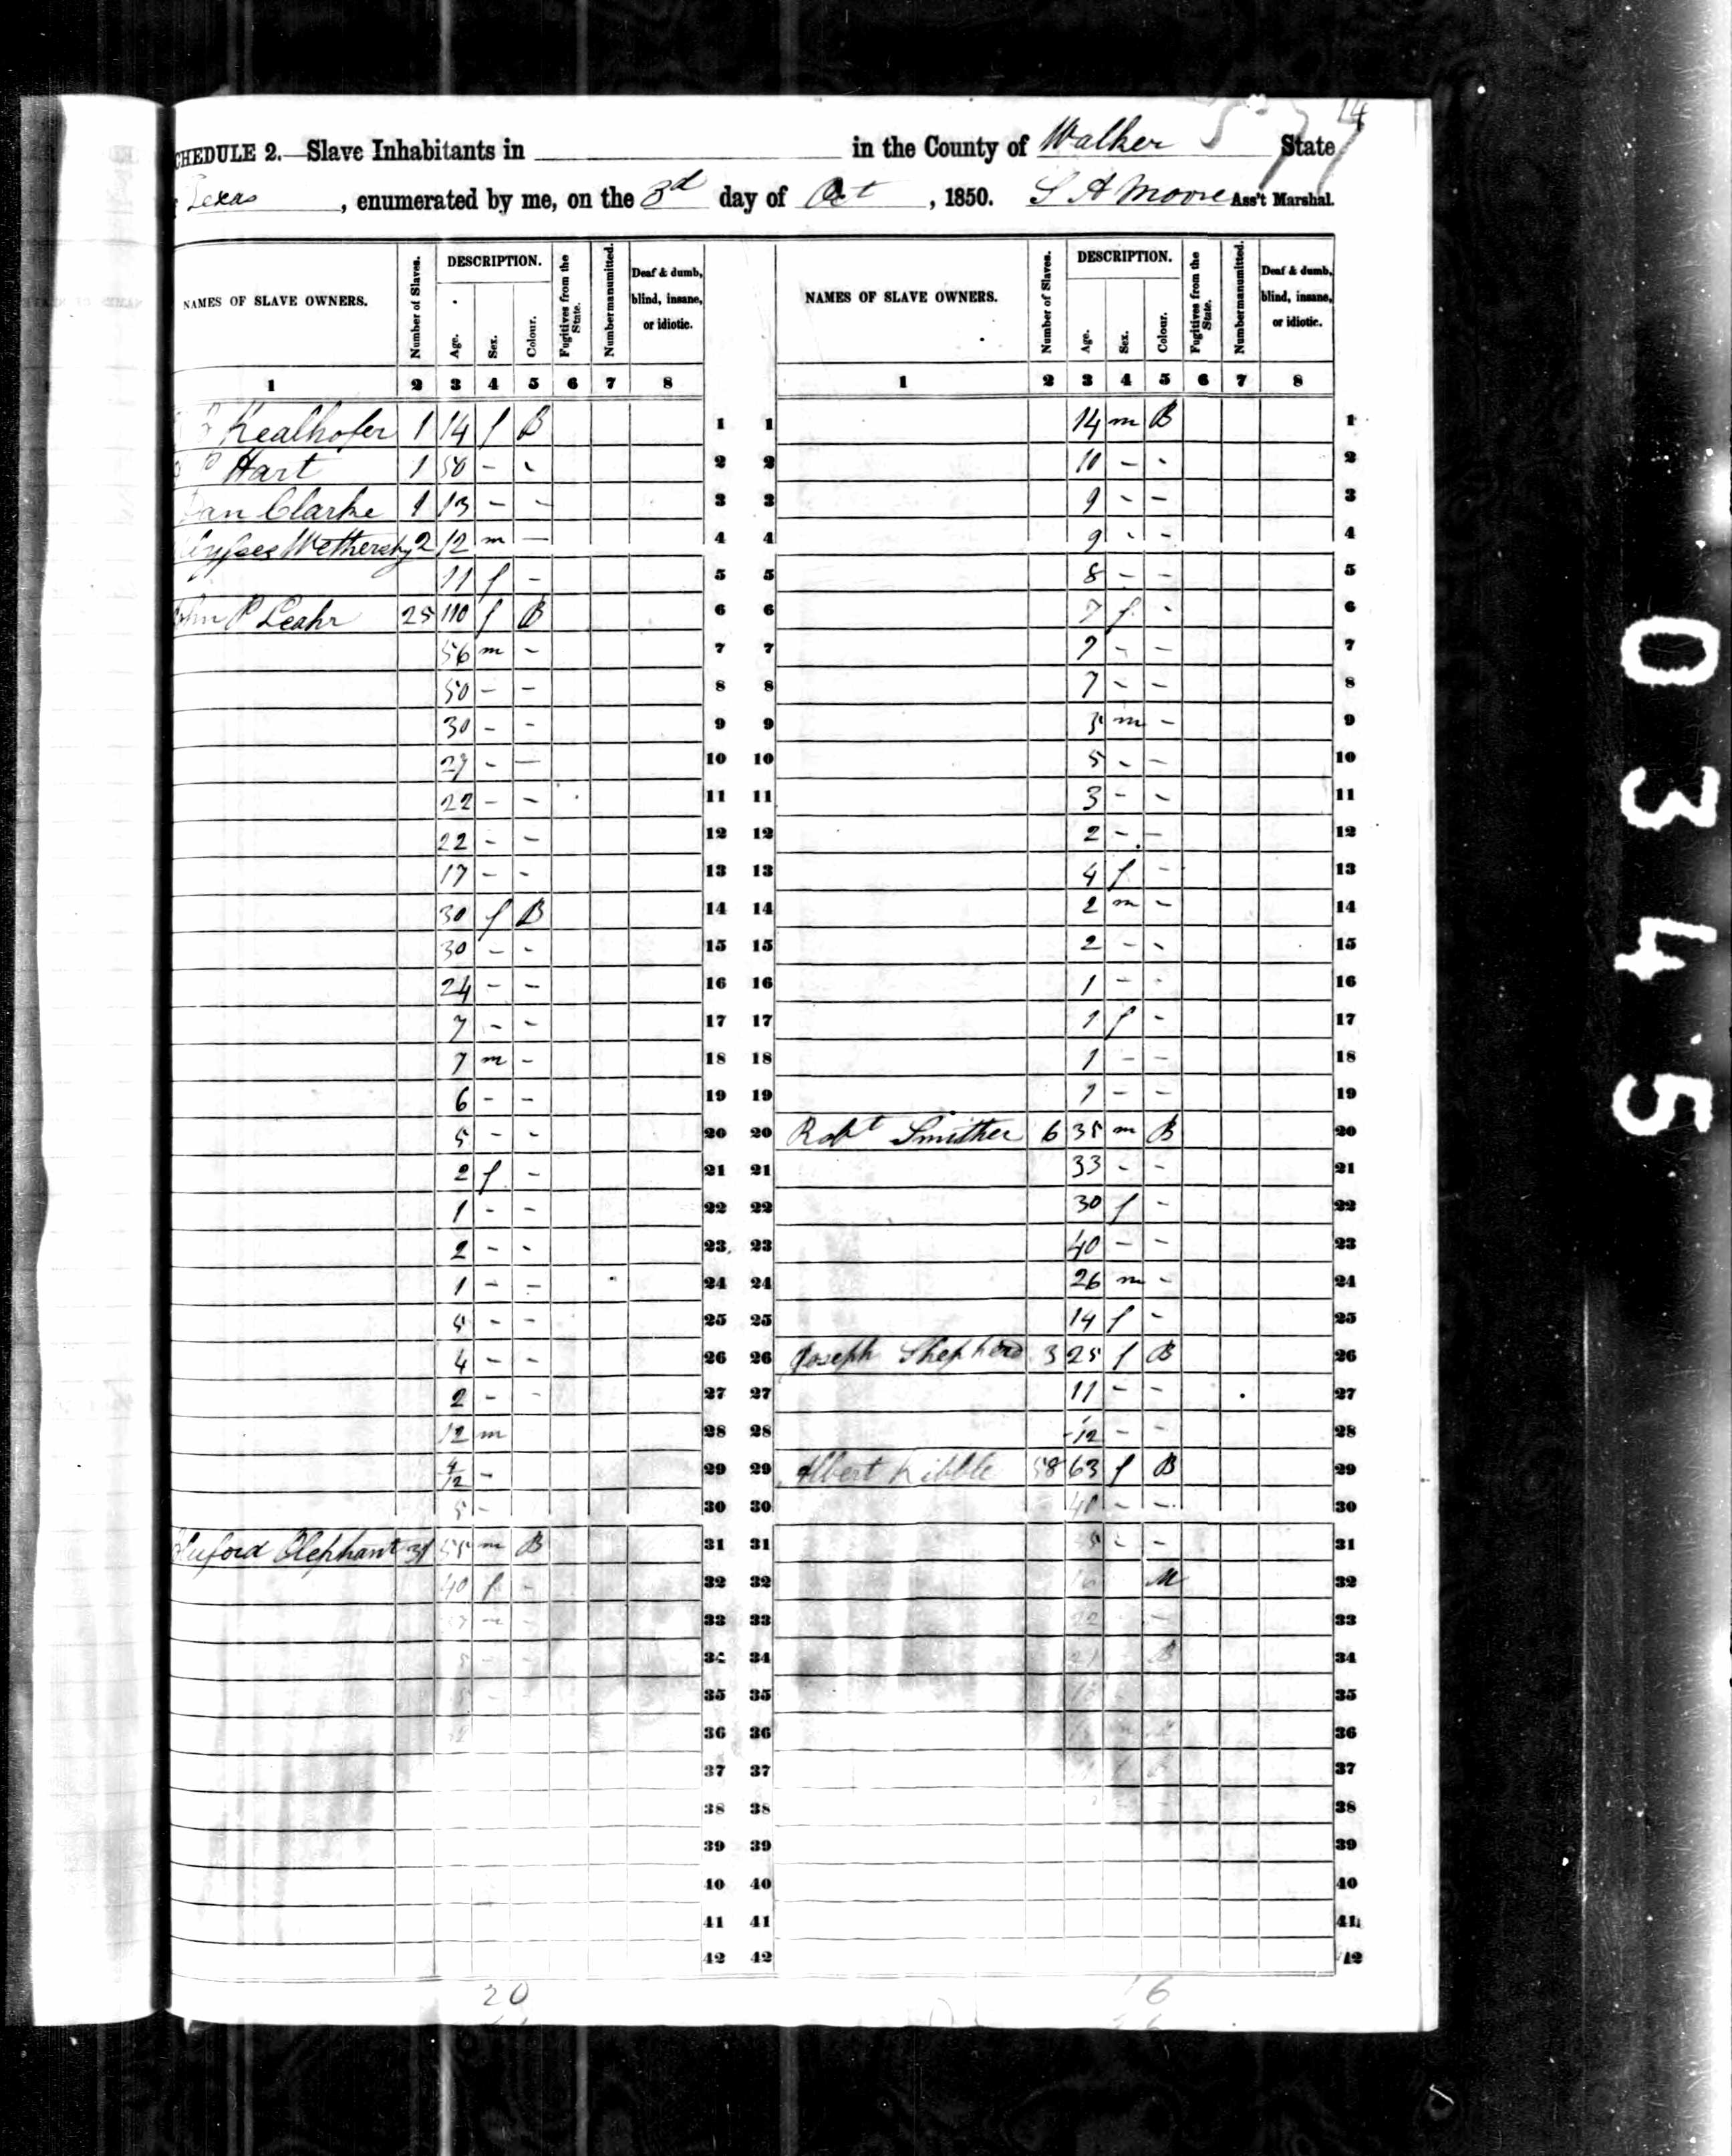 14
SCHEDULE 2.—Slave Inhabitants in in the County of Walker State
Texas, enumerated by me, on the 3d day of Oct, 1850. S A Moore Ass't Marshal.
NAMES OF SLAVE OWNERS. Number of Slaves. DESCRIPTION. Age. Sex. Colour. Fugitives from the State. Number manumitted. Deaf & dumb, blind, insane, or idiotic.
NAMES OF SLAVE OWNERS. Number of Slaves. DESCRIPTION. Age. Sex. Colour. Fugitives from the State. Number manumitted. Deaf & dumb, blind, insane, or idiotic.
1 2 3 4 5 6 7 8 1 2 3 4 5 6 7 8
Kealhofer 1 14 f B 1
Hart 1 50 - - 2
Clarke 1 13 - - 3
Wethersby 2 12 m - 4
11 f - 5
John P Leahr 25 110 f B 6
56 m - 7
50 - - 8
30 - - 9
29 - - 10
22 - - 11
22 - - 12
17 - - 13
30 f B 14
30 - - 15
24 - - 16
7 - - 17
7 m - 18
6 - - 19
5 - - 20
2 f - 21
1 - - 22
2 - - 23
1 - - 24
5 - - 25
4 - - 26
2 - - 27
12 m 28
4/12 - 29
5 - 30
Oliphant 31 55 m B 31
40 f - 32
m - 33
34
35
36
37
38
39
40
41
42
20
1 14 m B 1
2 10 - - 2
3 9 - - 3
4 9 - - 4
5 8 - - 5
6 7 f - 6
7 7 - - 7
8 7 - - 8
9 m - 9
10 5 - - 10
11 3 - - 11
12 2 - - 12
13 4 f - 13
14 2 m - 14
15 2 - - 15
16 1 - - 16
17 1 f - 17
18 1 - - 18
19 1 - - 19
20 Robt Smither 6 35 m B 20
21 33 - - 21
22 30 f - 22
23 40 - - 23
24 26 m - 24
25 14 f - 25
26 Joseph Shepherd 3 25 f B 26
27 11 - - 27
28 1/12 - - 28
29 Albert Kibble 58 63 f B 29
30 - - 30
31 - - 31
32 M 32
33 22 - 33
34 21 B 34
35 35
36 36
37 37
38 38
39 39
40 40
41 41
42 42
16
0345